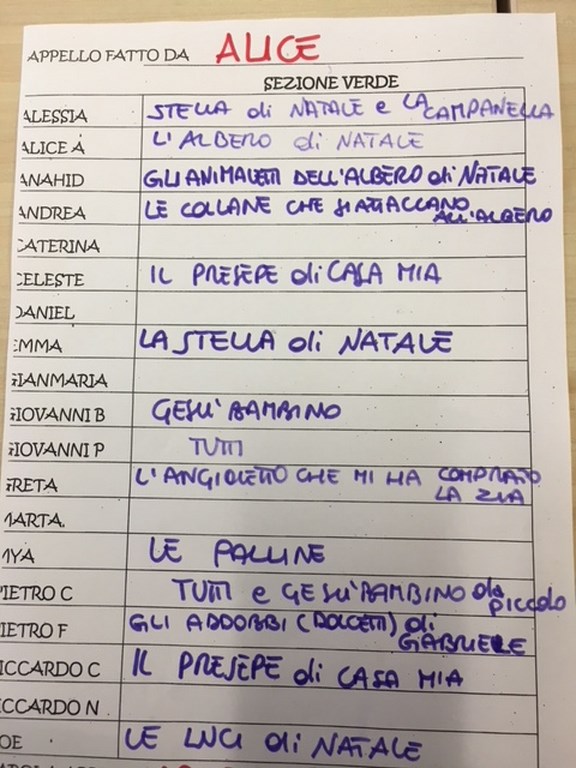 APPELLO FATTO DA ALICE
SEZIONE VERDE
ALESSIA STELLA di NATALE e LA CAMPANELLA
ALICE A L'ALBERO di NATALE
ANAHID GLI ANIMALETTI DELL'ALBERO di NATALE
ANDREA LE COLLANE CHE SI ATTACCANO ALL'ALBERO
CATERINA
CELESTE IL PRESEPE di CASA MIA
DANIEL
EMMA LA STELLA di NATALE
GIANMARIA
GIOVANNI B GESU' BAMBINO
GIOVANNI P TUTTI
GRETA L'ANGIOLETTO CHE MI HA COMPRATO LA ZIA
MARTA.
MYA LE PALLINE
PIETRO C TUTTI e GESU' BAMBINO da piccolo
PIETRO F GLI ADDOBBI (DOLCETTI) di GABRIELE
RICCARDO C IL PRESEPE di CASA MIA
RICCARDO N
OE LE LUCI di NATALE